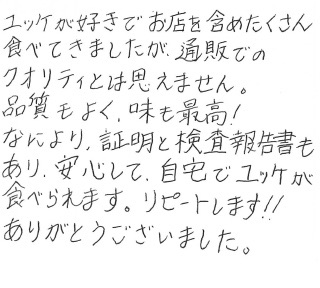 ユッケが好きでお店を含めたくさん
食べてきましたが、通販での
クオリティとは思えません。
品質もよく、味も最高!
なにより、証明と検査報告書も
あり、安心して、自宅でユッケが
食べられます。リピートします!!
ありがとうございました。